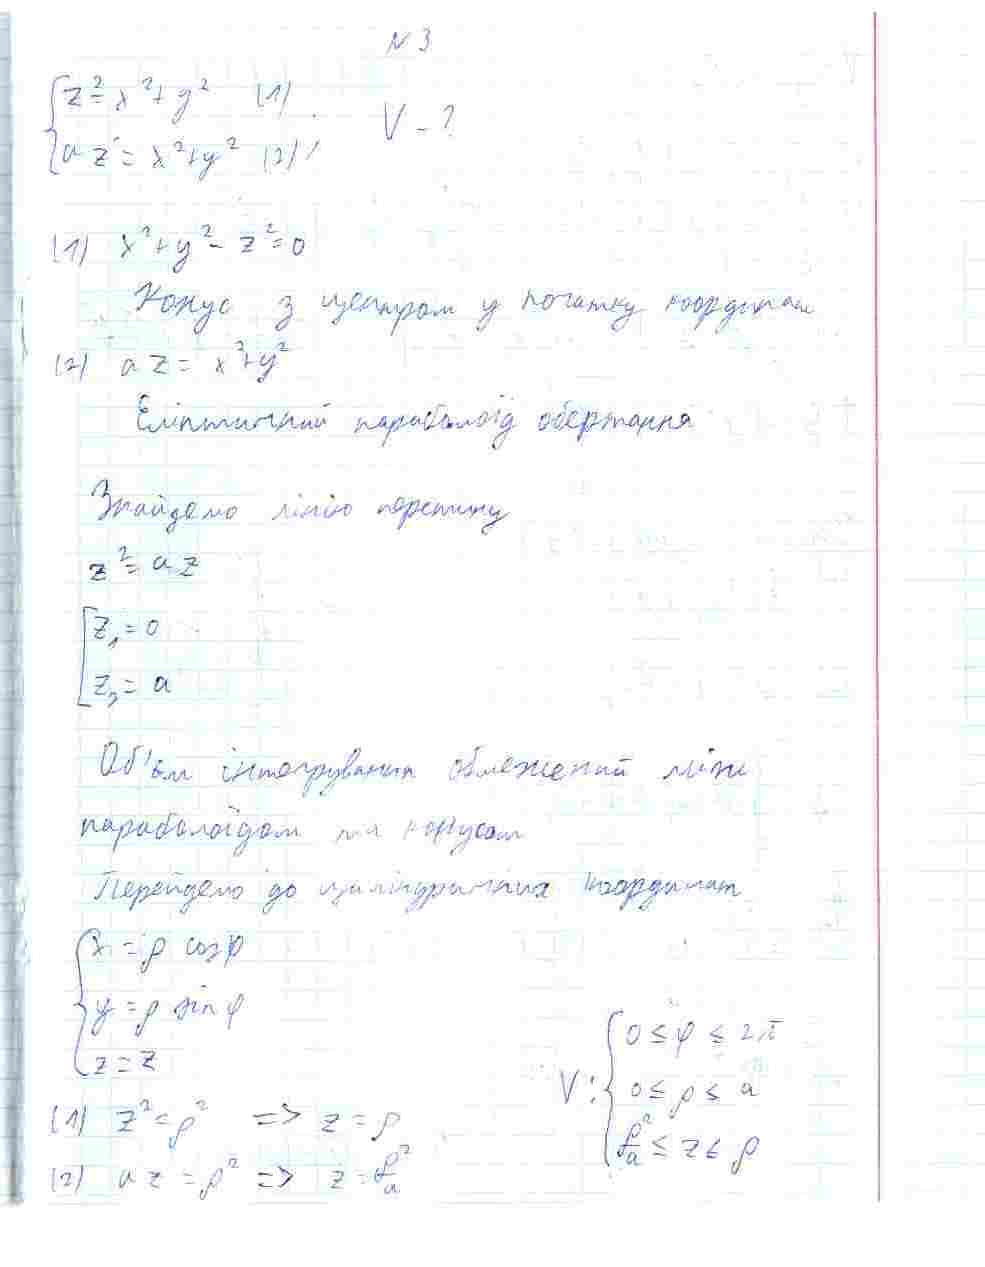 №3
{ z² = x² + y² (1)
{ az = x² + y² (2) ; V - ?
(1) x² + y² - z² = 0
Конус з центром у початку координат
(2) az = x² + y²
Еліптичний параболоїд обертання
Знайдемо лінію перетину
z² = az
[ z₁ = 0
[ z₂ = a
Об'єм інтегрування обмежений між
параболоїдом та конусом
Перейдемо до циліндричних координат
{ x = ρ cos φ
{ y = ρ sin φ
{ z = z
(1) z² = ρ² => z = ρ
(2) az = ρ² => z = ρ²/a
V: { 0 ≤ φ ≤ 2π
{ 0 ≤ ρ ≤ a
{ ρ²/a ≤ z ≤ ρ